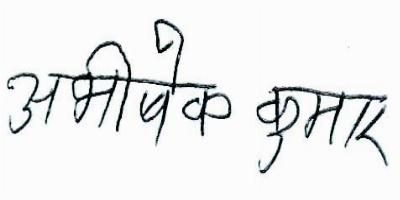 अभीषेक कुमार